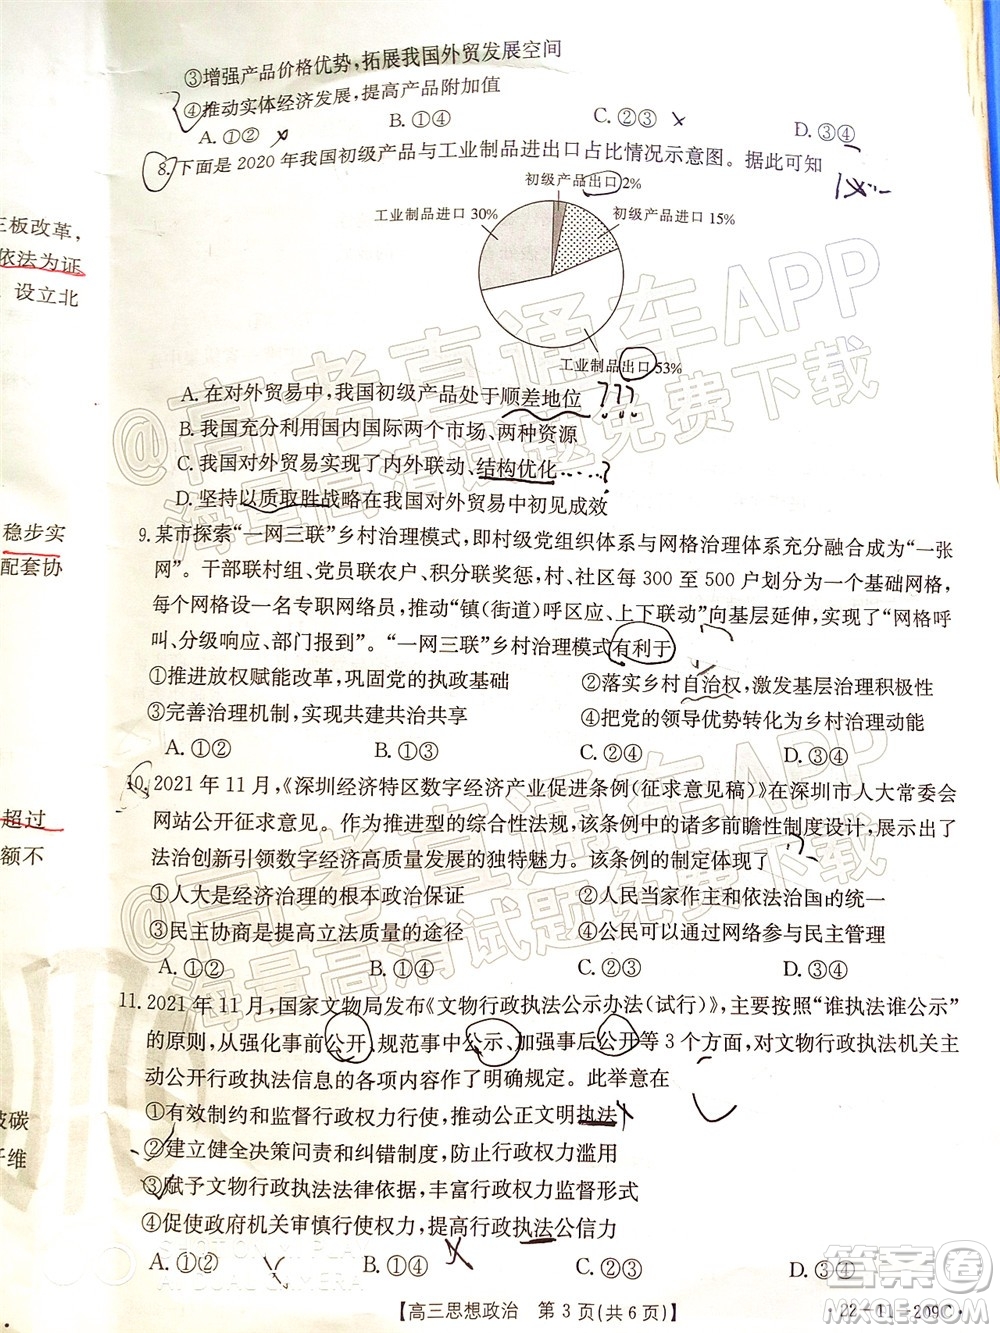 ③增强产品价格优势,拓展我国外贸发展空间
④推动实体经济发展,提高产品附加值
A. ①② B. ①④ C. ②③ D. ③④
8. 下面是 2020 年我国初级产品与工业制品进出口占比情况示意图。据此可知
初级产品出口 2%
工业制品进口 30%
初级产品进口 15%
工业制品出口 53%
A. 在对外贸易中,我国初级产品处于顺差地位 ???
B. 我国充分利用国内国际两个市场、两种资源
C. 我国对外贸易实现了内外联动、结构优化
D. 坚持以质取胜战略在我国对外贸易中初见成效
9. 某市探索“一网三联”乡村治理模式,即村级党组织体系与网格治理体系充分融合成为“一张
网”。干部联村组、党员联农户、积分联奖惩,村、社区每 300 至 500 户划分为一个基础网格,
每个网格设一名专职网络员,推动“镇(街道)呼区应、上下联动”向基层延伸,实现了“网格呼
叫、分级响应、部门报到”。“一网三联”乡村治理模式有利于
①推进放权赋能改革,巩固党的执政基础 ②落实乡村自治权,激发基层治理积极性
③完善治理机制,实现共建共治共享 ④把党的领导优势转化为乡村治理动能
A. ①② B. ①③ C. ②④ D. ③④
10. 2021 年 11 月,《深圳经济特区数字经济产业促进条例(征求意见稿)》在深圳市人大常委会
网站公开征求意见。作为推进型的综合性法规,该条例中的诸多前瞻性制度设计,展示出了
法治创新引领数字经济高质量发展的独特魅力。该条例的制定体现了
①人大是经济治理的根本政治保证 ②人民当家作主和依法治国的统一
③民主协商是提高立法质量的途径 ④公民可以通过网络参与民主管理
A. ①② B. ①④ C. ②③ D. ③④
11. 2021 年 11 月,国家文物局发布《文物行政执法公示办法(试行)》,主要按照“谁执法谁公示”
的原则,从强化事前公开、规范事中公示、加强事后公开等 3 个方面,对文物行政执法机关主
动公开行政执法信息的各项内容作了明确规定。此举意在
①有效制约和监督行政权力行使,推动公正文明执法
②建立健全决策问责和纠错制度,防止权力滥用
③赋予文物行政执法法律依据,丰富行政权力监督形式
④促使政府机关审慎行使权力,提高行政执法公信力
A. ①② B. ①④ C. ②③ D. ③④
【高三思想政治 第 3 页(共 6 页)】
·22-11-209C·
三板改革,
依法为证
设立北
稳步实
配套协
超过
额不
碳
纤维
@高考直通车APP
海量高清试题免费下载
@高考直通车APP
海量高清试题免费下载
答案圈
MXQE.COM